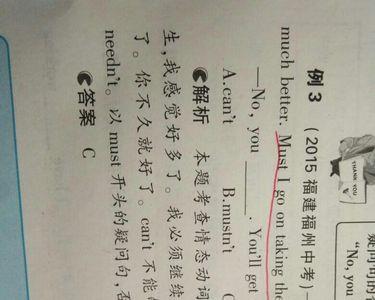 例 3 (2015 福建福州中考)
much better. Must I go on taking the
—No, you ______. You'll get
A.can't B.mustn't C
解析 本题考查情态动词
生,我感觉好多了。我必须继续
了。你不久就好了。can't 不能
needn't。以 must 开头的疑问句,否
答案 C
THANK YOU
疑问句的
"No, you